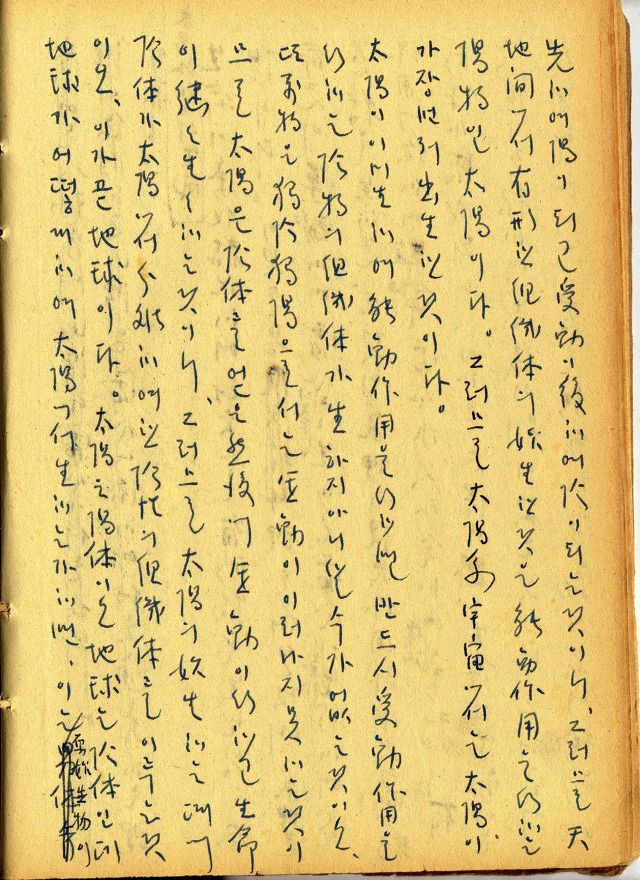 先하여陽이되고受動이後하여陰이되는것이니、그러므로天
地間에서有形의個體의始生한것은能動作用을行하는
陽物인太陽이다。그러므로太陽系宇宙에서는太陽이
가장먼저出生한것이다。
太陽이이미生하여能動作用을行하면반드시受動作用을
行하는陰物의個體가生하지아니할수가없는것이오、
또萬物은獨陰獨陽으로서는運動이이러나지못하는것이
므로太陽은陰体를얻은然後에運動이行하고生命
이繼生하는것이니、그러므로太陽의始生하는때에
陰体가太陽에서分離하여한陰性의個體를이루는것
이오、이가곧地球이다。太陽은陽体이오地球는陰体인데
地球가어떻게하여太陽에서生하는가하면、이는
生物이